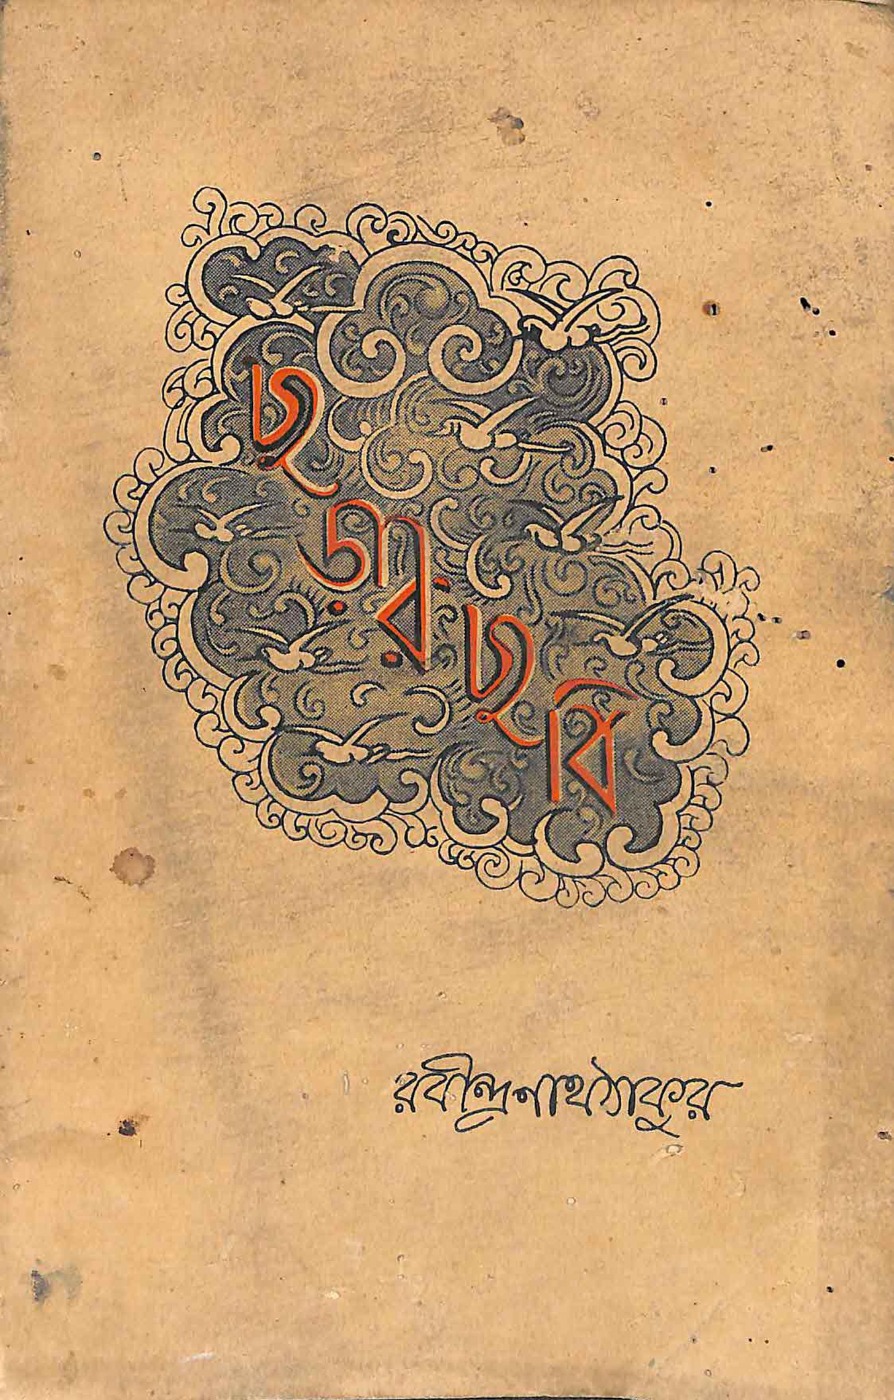 ছড়ার ছবি
রবীন্দ্রনাথ ঠাকুর